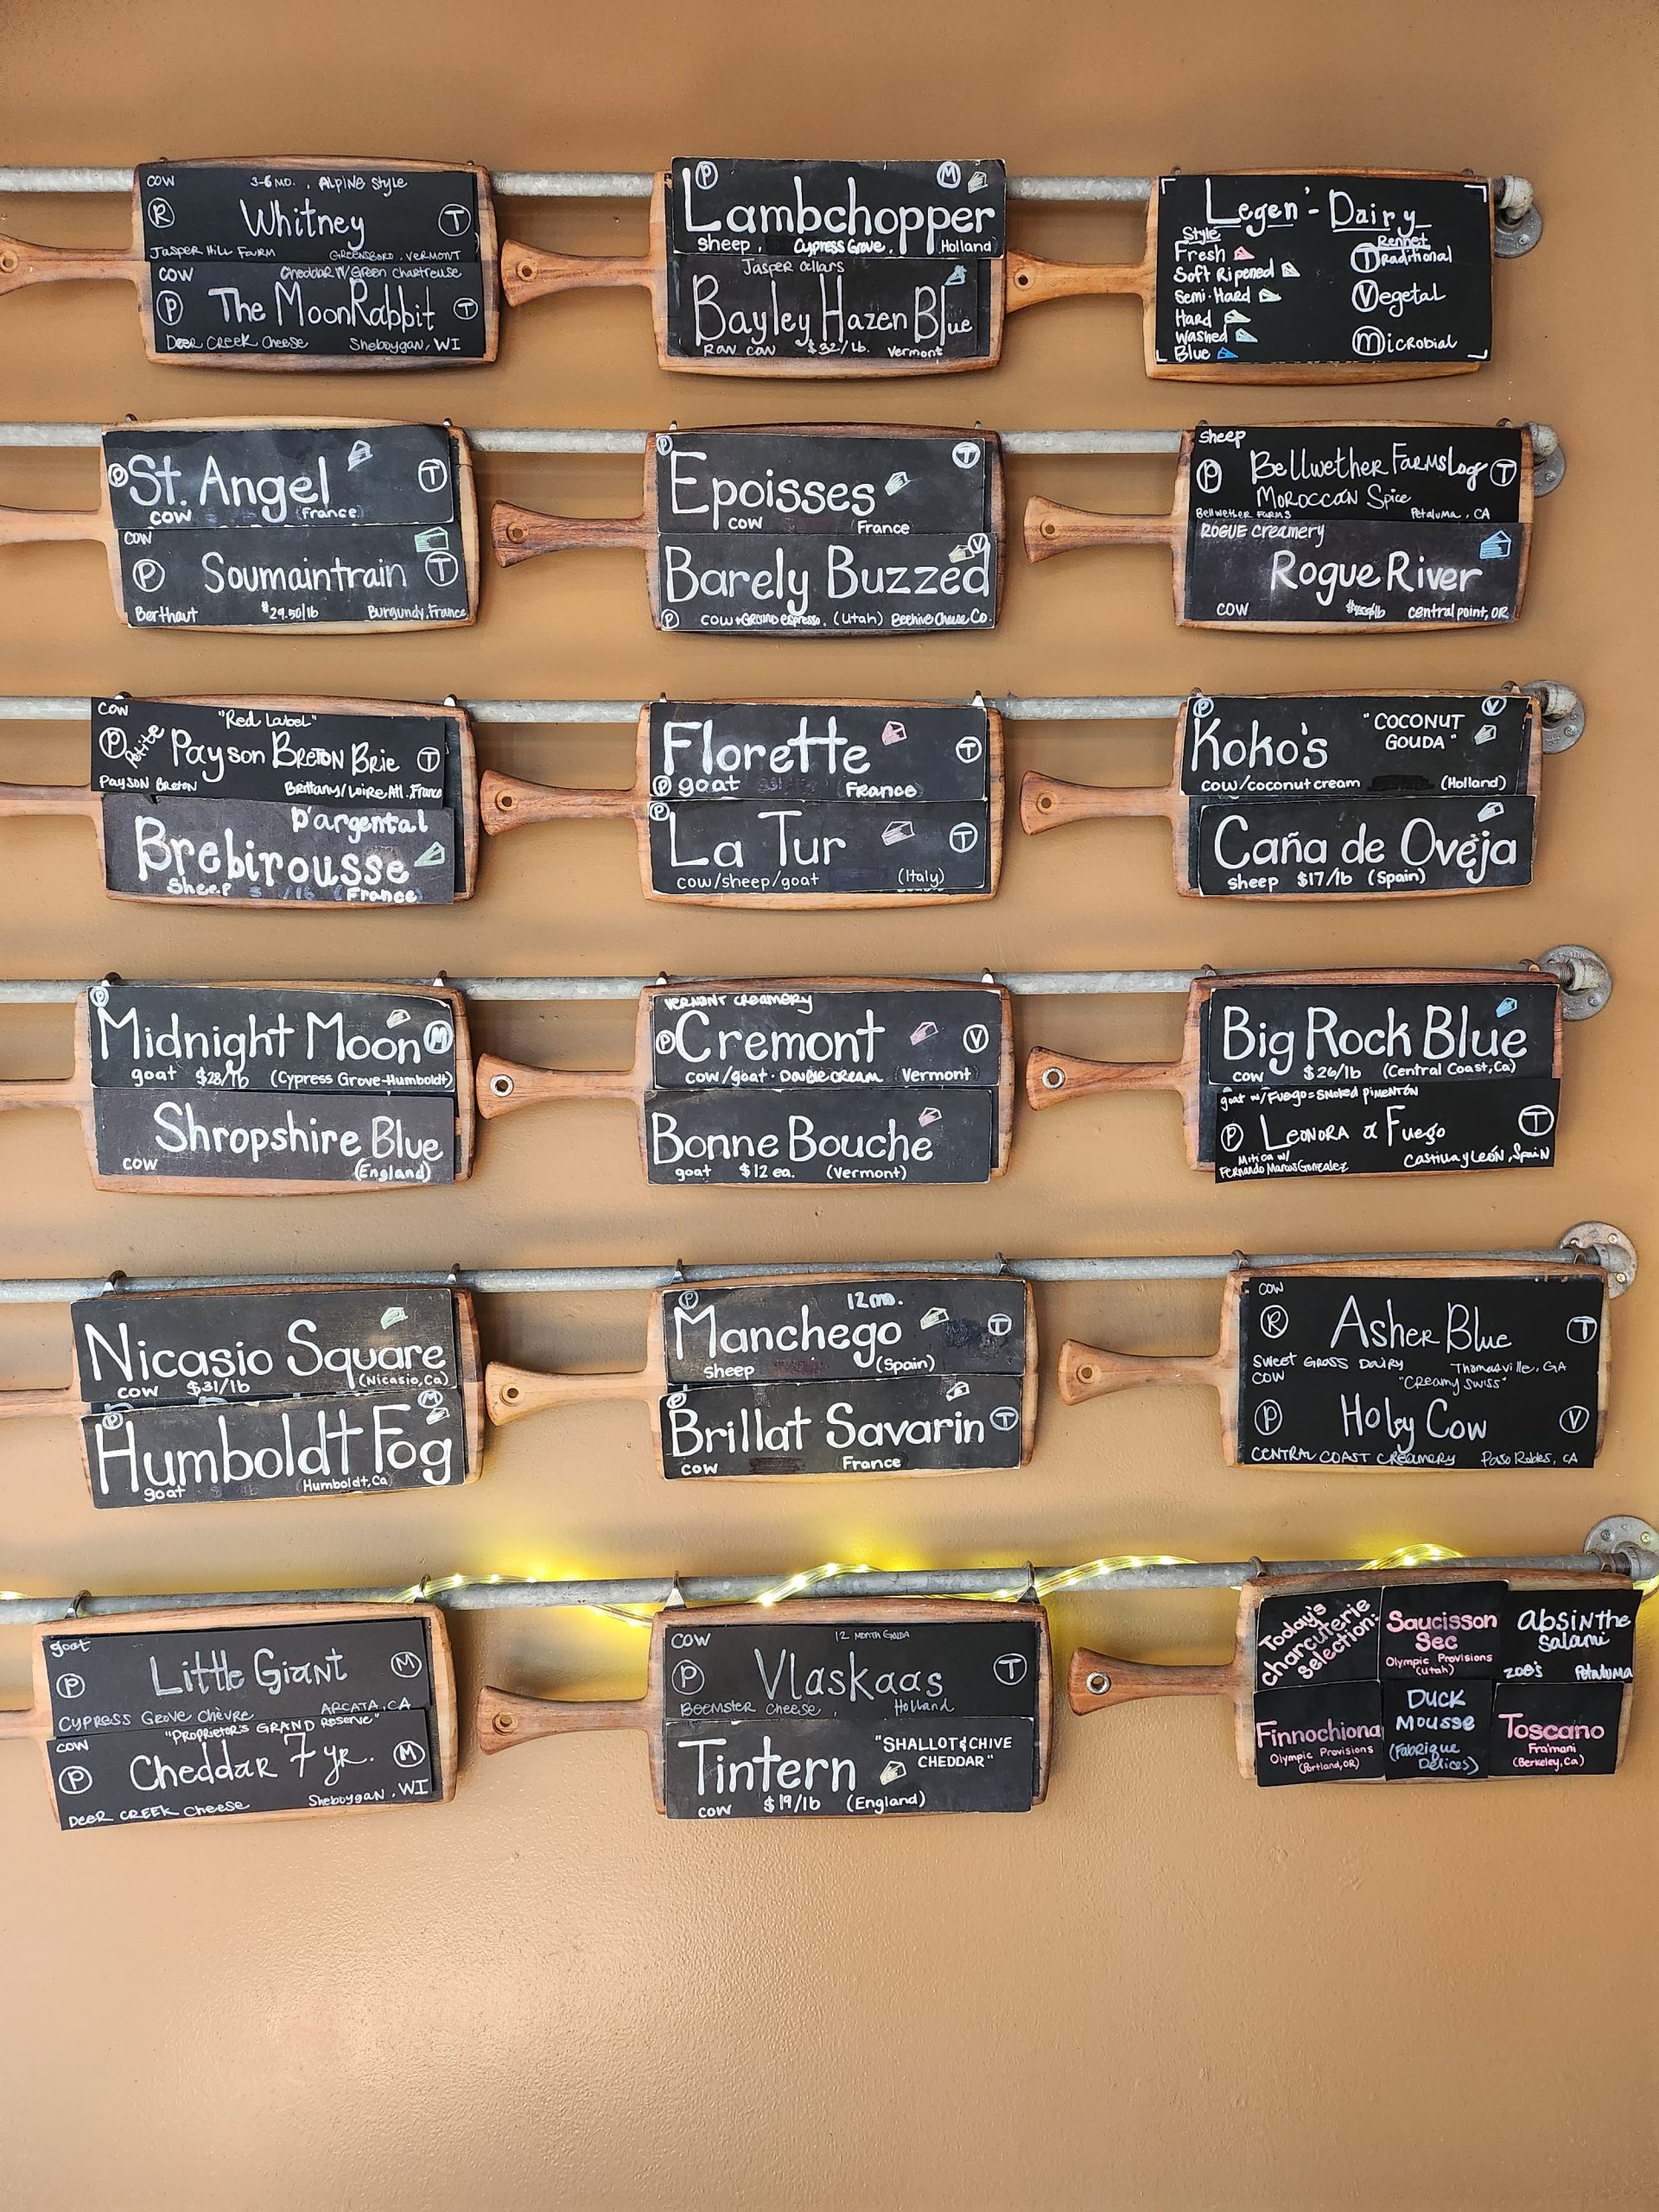 COW 3-6 MO. , Alpine Style
R Whitney T
Jasper Hill Farm Greensboro, Vermont
COW Cheddar w/ Green chartreuse
P The MoonRabbit T
Deer Creek Cheese Sheboygan, WI
P M
Lambchopper
sheep, Cypress Grove, Holland
Jasper Cellars
Bayley Hazen Blue
Raw cow $32/lb. Vermont
Legen'-Dairy
Style Rennet
Fresh Traditional
Soft Ripened
Semi-Hard Vegetal
Hard
Washed Microbial
Blue
P St. Angel T
cow (France)
COW
P Soumaintrain T
Berthaut $29.50/lb Burgundy, France
P T
Epoisses
cow France
V
Barely Buzzed
P cow+Ground espresso. (Utah) Beehive Cheese Co.
sheep
P Bellwether Farms Log T
Moroccan Spice
Bellwether Farms Petaluma, CA
Rogue Creamery
Rogue River
cow central point, OR
COW "Red Label"
P Petite Payson Breton Brie T
Payson Breton Brittany/Loire Atl. France
D'argental
Brebirousse
Sheep /lb (France)
Florette T
P goat France
P
La Tur T
cow/sheep/goat (Italy)
P "COCONUT V
Koko's GOUDA"
cow/coconut cream (Holland)
Caña de Oveja
sheep $17/lb (Spain)
P
Midnight Moon M
goat $28/lb (Cypress Grove-Humboldt)
Shropshire Blue
cow (England)
Vermont Creamery
P Cremont V
cow/goat · Double cream Vermont
Bonne Bouche
goat $12 ea. (Vermont)
Big Rock Blue
cow $26/lb (Central Coast, Ca)
goat w/ Fuego = smoked pimenton
P Leonora al Fuego T
Mitica w/
Fernando Marcos Gonzalez Castilla y León, Spain
Nicasio Square
cow $31/lb (Nicasio, Ca)
P M
Humboldt Fog
goat (Humboldt, Ca)
P 12 mo.
Manchego T
sheep (Spain)
P
Brillat Savarin T
cow France
COW
R Asher Blue T
Sweet Grass Dairy Thomasville, GA
COW "Creamy Swiss"
P Holey Cow V
Central Coast Creamery Paso Robles, CA
goat
P Little Giant M
Cypress Grove Chèvre Arcata, CA
COW "Proprietor's Grand Reserve"
P Cheddar 7 yr. M
Deer Creek Cheese Sheboygan, WI
COW 12 Month Gouda
P Vlaskaas T
Beemster Cheese, Holland
Tintern "SHALLOT & CHIVE
CHEDDAR"
cow $19/lb (England)
Today's
charcuterie
selection:
Saucisson
Sec
Olympic Provisions
(Utah)
Absinthe
Salami
Zoe's Petaluma
Finnochiona
Olympic Provisions
(Portland, OR)
Duck
Mousse
(Fabrique
Délices)
Toscano
Fra'mani
(Berkeley, Ca)